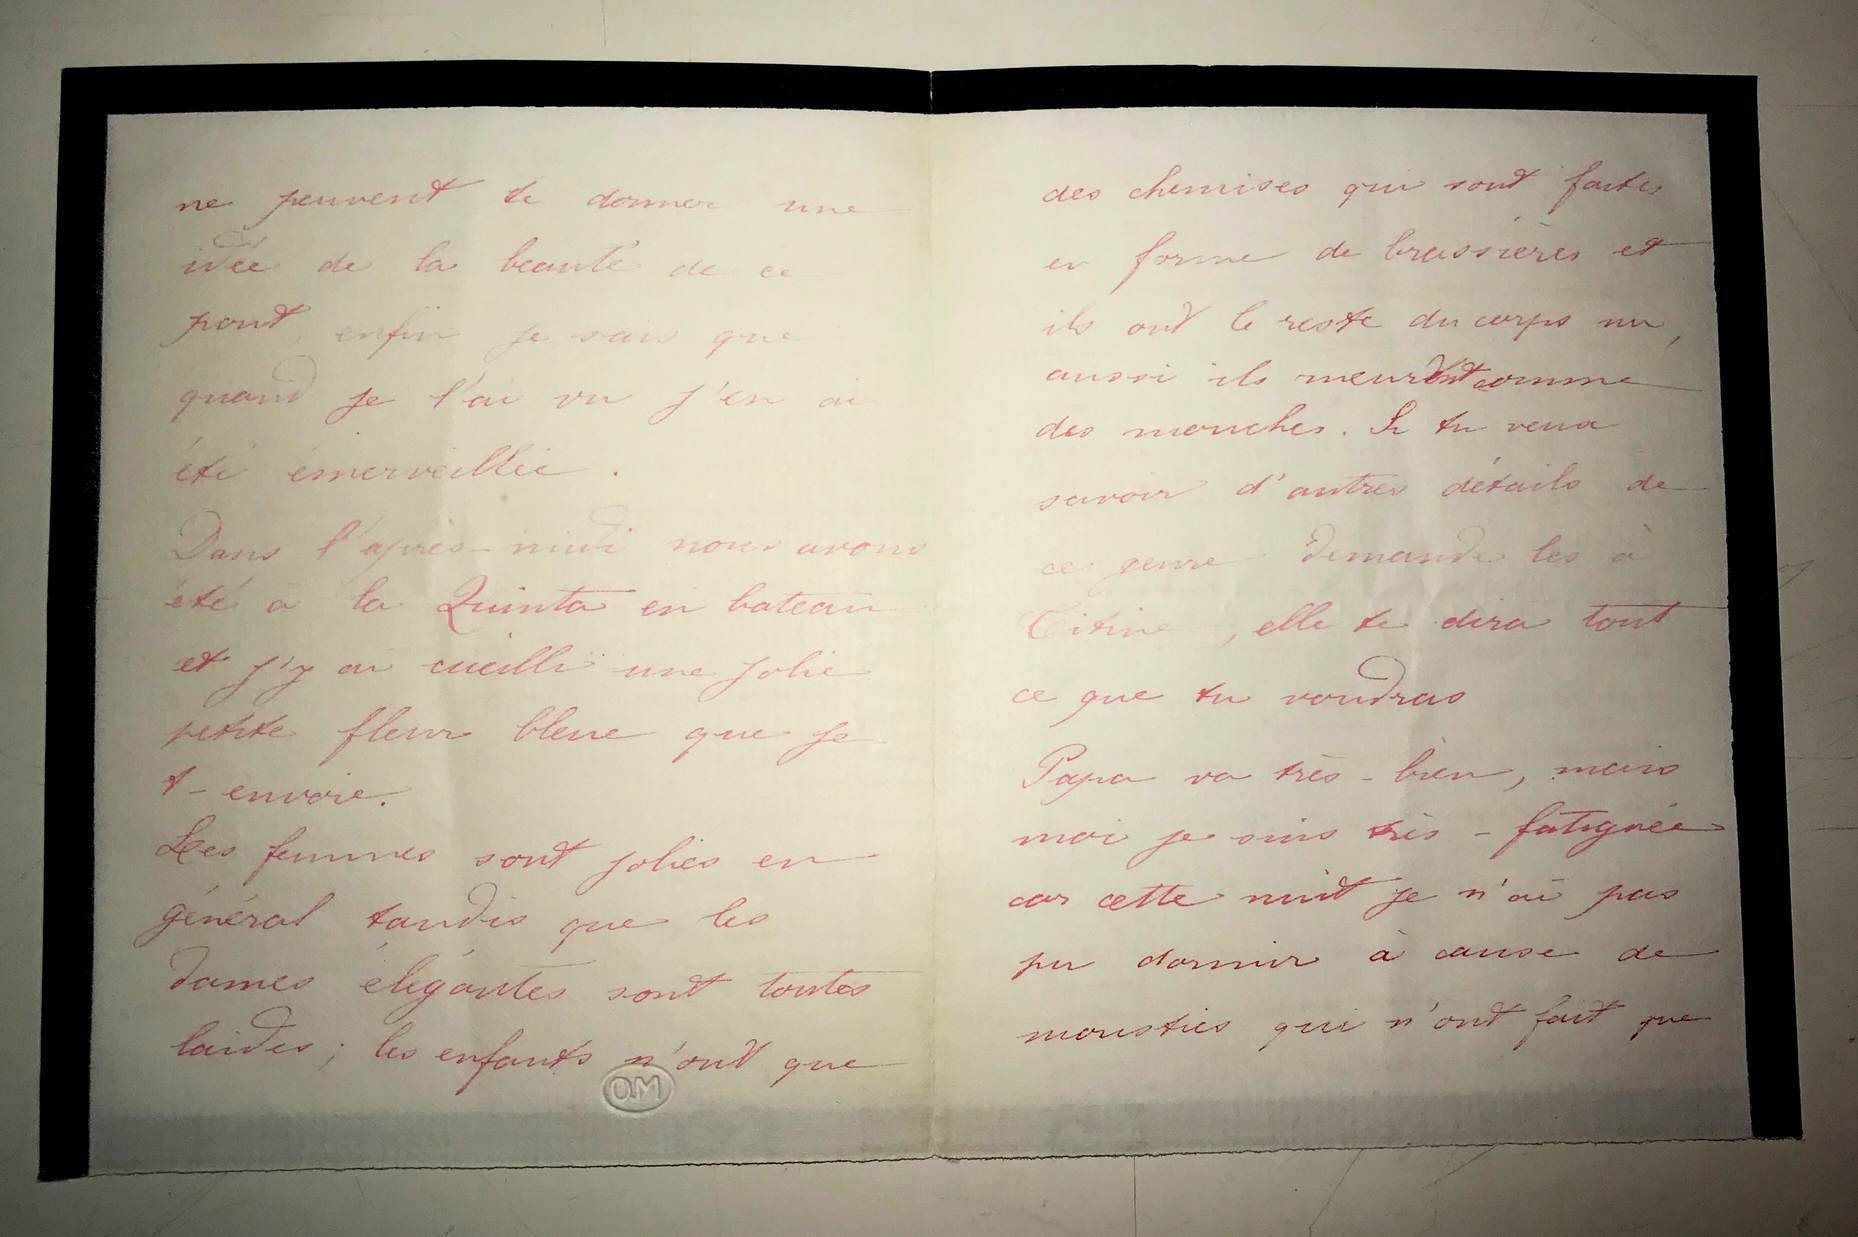 ne peuvent te donner une
idée de la beauté de ce
pont, enfin je sais que
quand je l'ai vu j'en ai
été émerveillée.
Dans l'après-midi nous avons
été à la Quinta en bateau
et j'y ai cueilli une jolie
petite fleur bleue que je
t-envoie.
Les femmes sont jolies en
général tandis que les
dames élégantes sont toutes
laides; les enfants n'ont que
OM
des chemises qui sont faites
en forme de brassières et
ils ont le reste du corps nu,
aussi ils meurent comme
des mouches. Si tu veux
savoir d'autres détails de
ce genre demande les à
Titine, elle te dira tout
ce que tu voudras
Papa va très-bien, mais
moi je suis très-fatiguée
car cette nuit je n'ai pas
pu dormir à cause de
moustics qui n'ont fait que